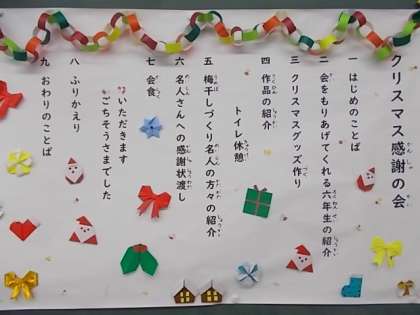 クリスマス感謝の会
一 はじめのことば
二 会をもりあげてくれる六年生の紹介
三 クリスマスグッズ作り
四 作品の紹介
トイレ休憩
五 梅干しづくり名人の方々の紹介
六 名人さんへの感謝状渡し
七 会食
いただきます
ごちそうさまでした
八 ふりかえり
九 おわりのことば